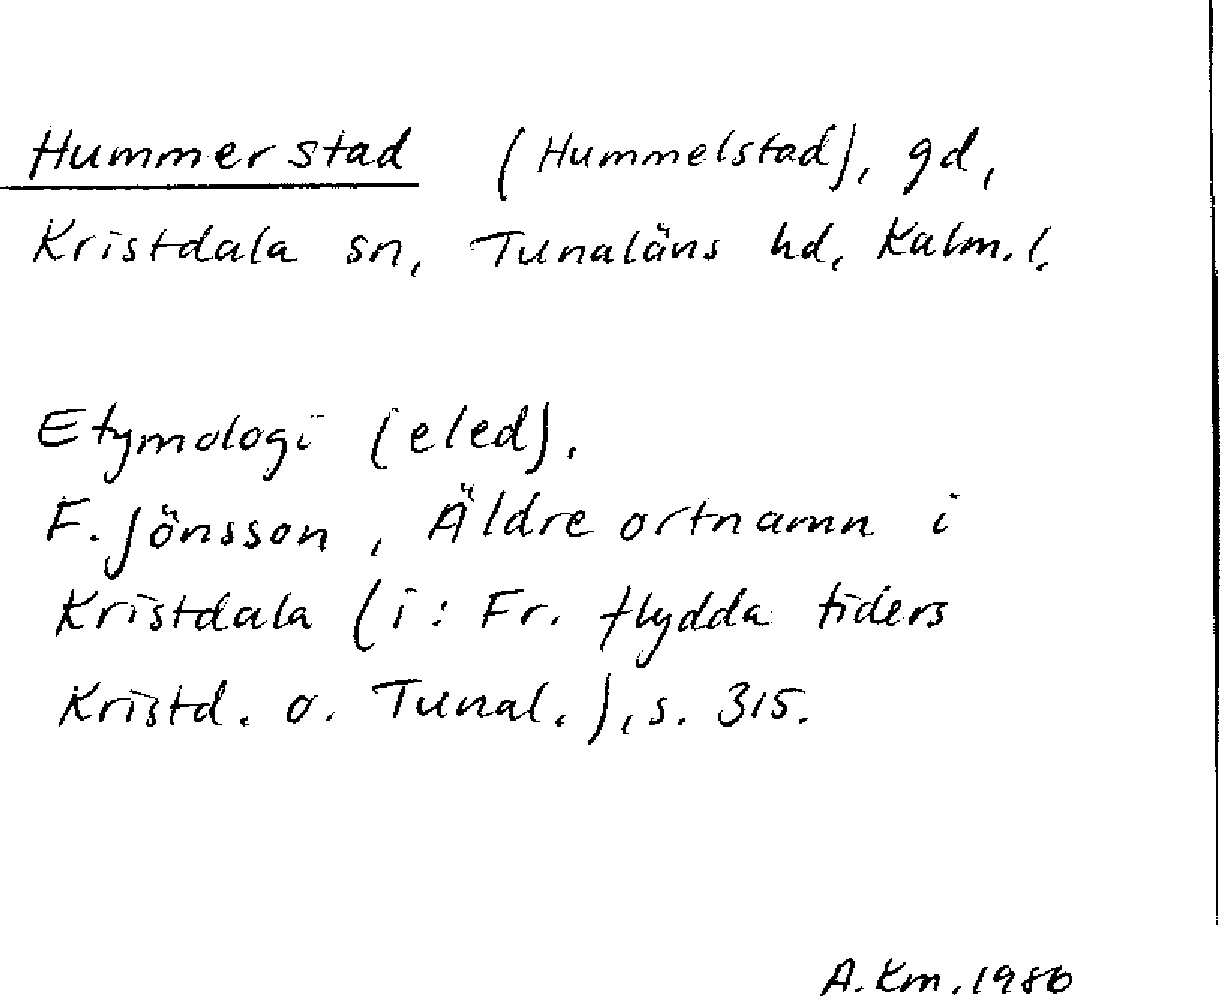 Hummerstad (Hummelstad), gd,
Kristdala sn, Tunaläns hd, Kalm. l.
Etymologi (eled).
F. Jönsson, Äldre ortnamn i
Kristdala (i: Fr. flydda tiders
Kristd. o. Tunal.), s. 315.
A. Km. 1986